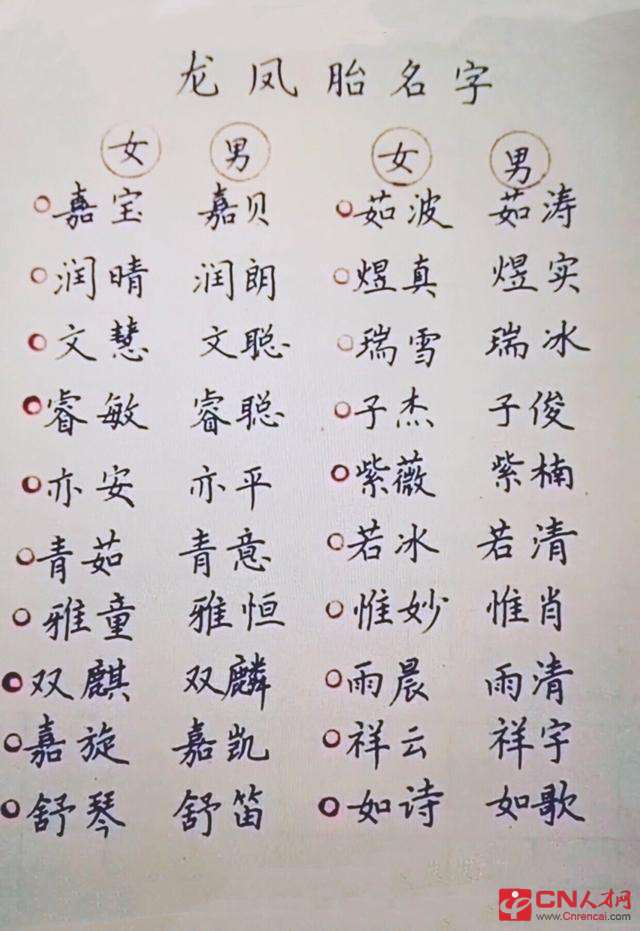 龙凤胎名字
女 男 女 男
嘉宝 嘉贝 茹波 茹涛
润晴 润朗 煜真 煜实
文慧 文聪 瑞雪 瑞冰
睿敏 睿聪 子杰 子俊
亦安 亦平 紫薇 紫楠
青茹 青意 若冰 若清
雅童 雅恒 惟妙 惟肖
双麒 双麟 雨晨 雨清
嘉旋 嘉凯 祥云 祥字
舒琴 舒笛 如诗 如歌
CN人才网
www.Cnrencai.com